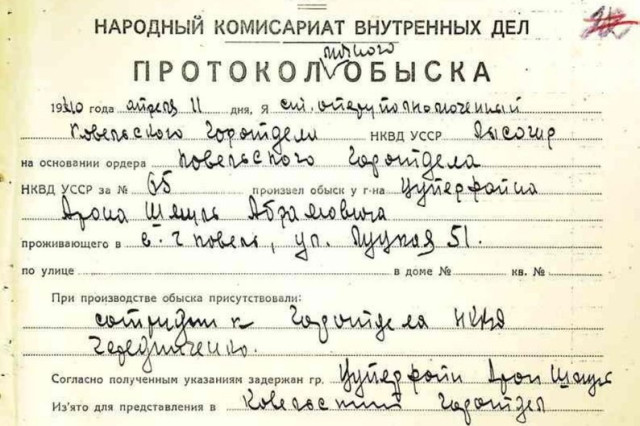 НАРОДНЫЙ КОМИСАРИАТ ВНУТРЕННЫХ ДЕЛ
личного
ПРОТОКОЛ ОБЫСКА
1940 года апреля 11 дня, Я ст. оперуполномоченный
Ковельского Горотдела НКВД УССР
на основании ордера Ковельского Горотдела
НКВД УССР за № 65 произвел обыск у г-на Цуперфайна
Арона Шмуль Абрамовича
проживающего в г. Ковель, ул. Луцкая 51.
по улице в доме № кв. №
При производстве обыска присутствовали:
сотрудник Горотдела НКВД
Чередниченко.
Согласно полученным указаниям задержан гр. Цуперфайн Арон Шмуль
Из'ято для представления в Ковельский Горотдел